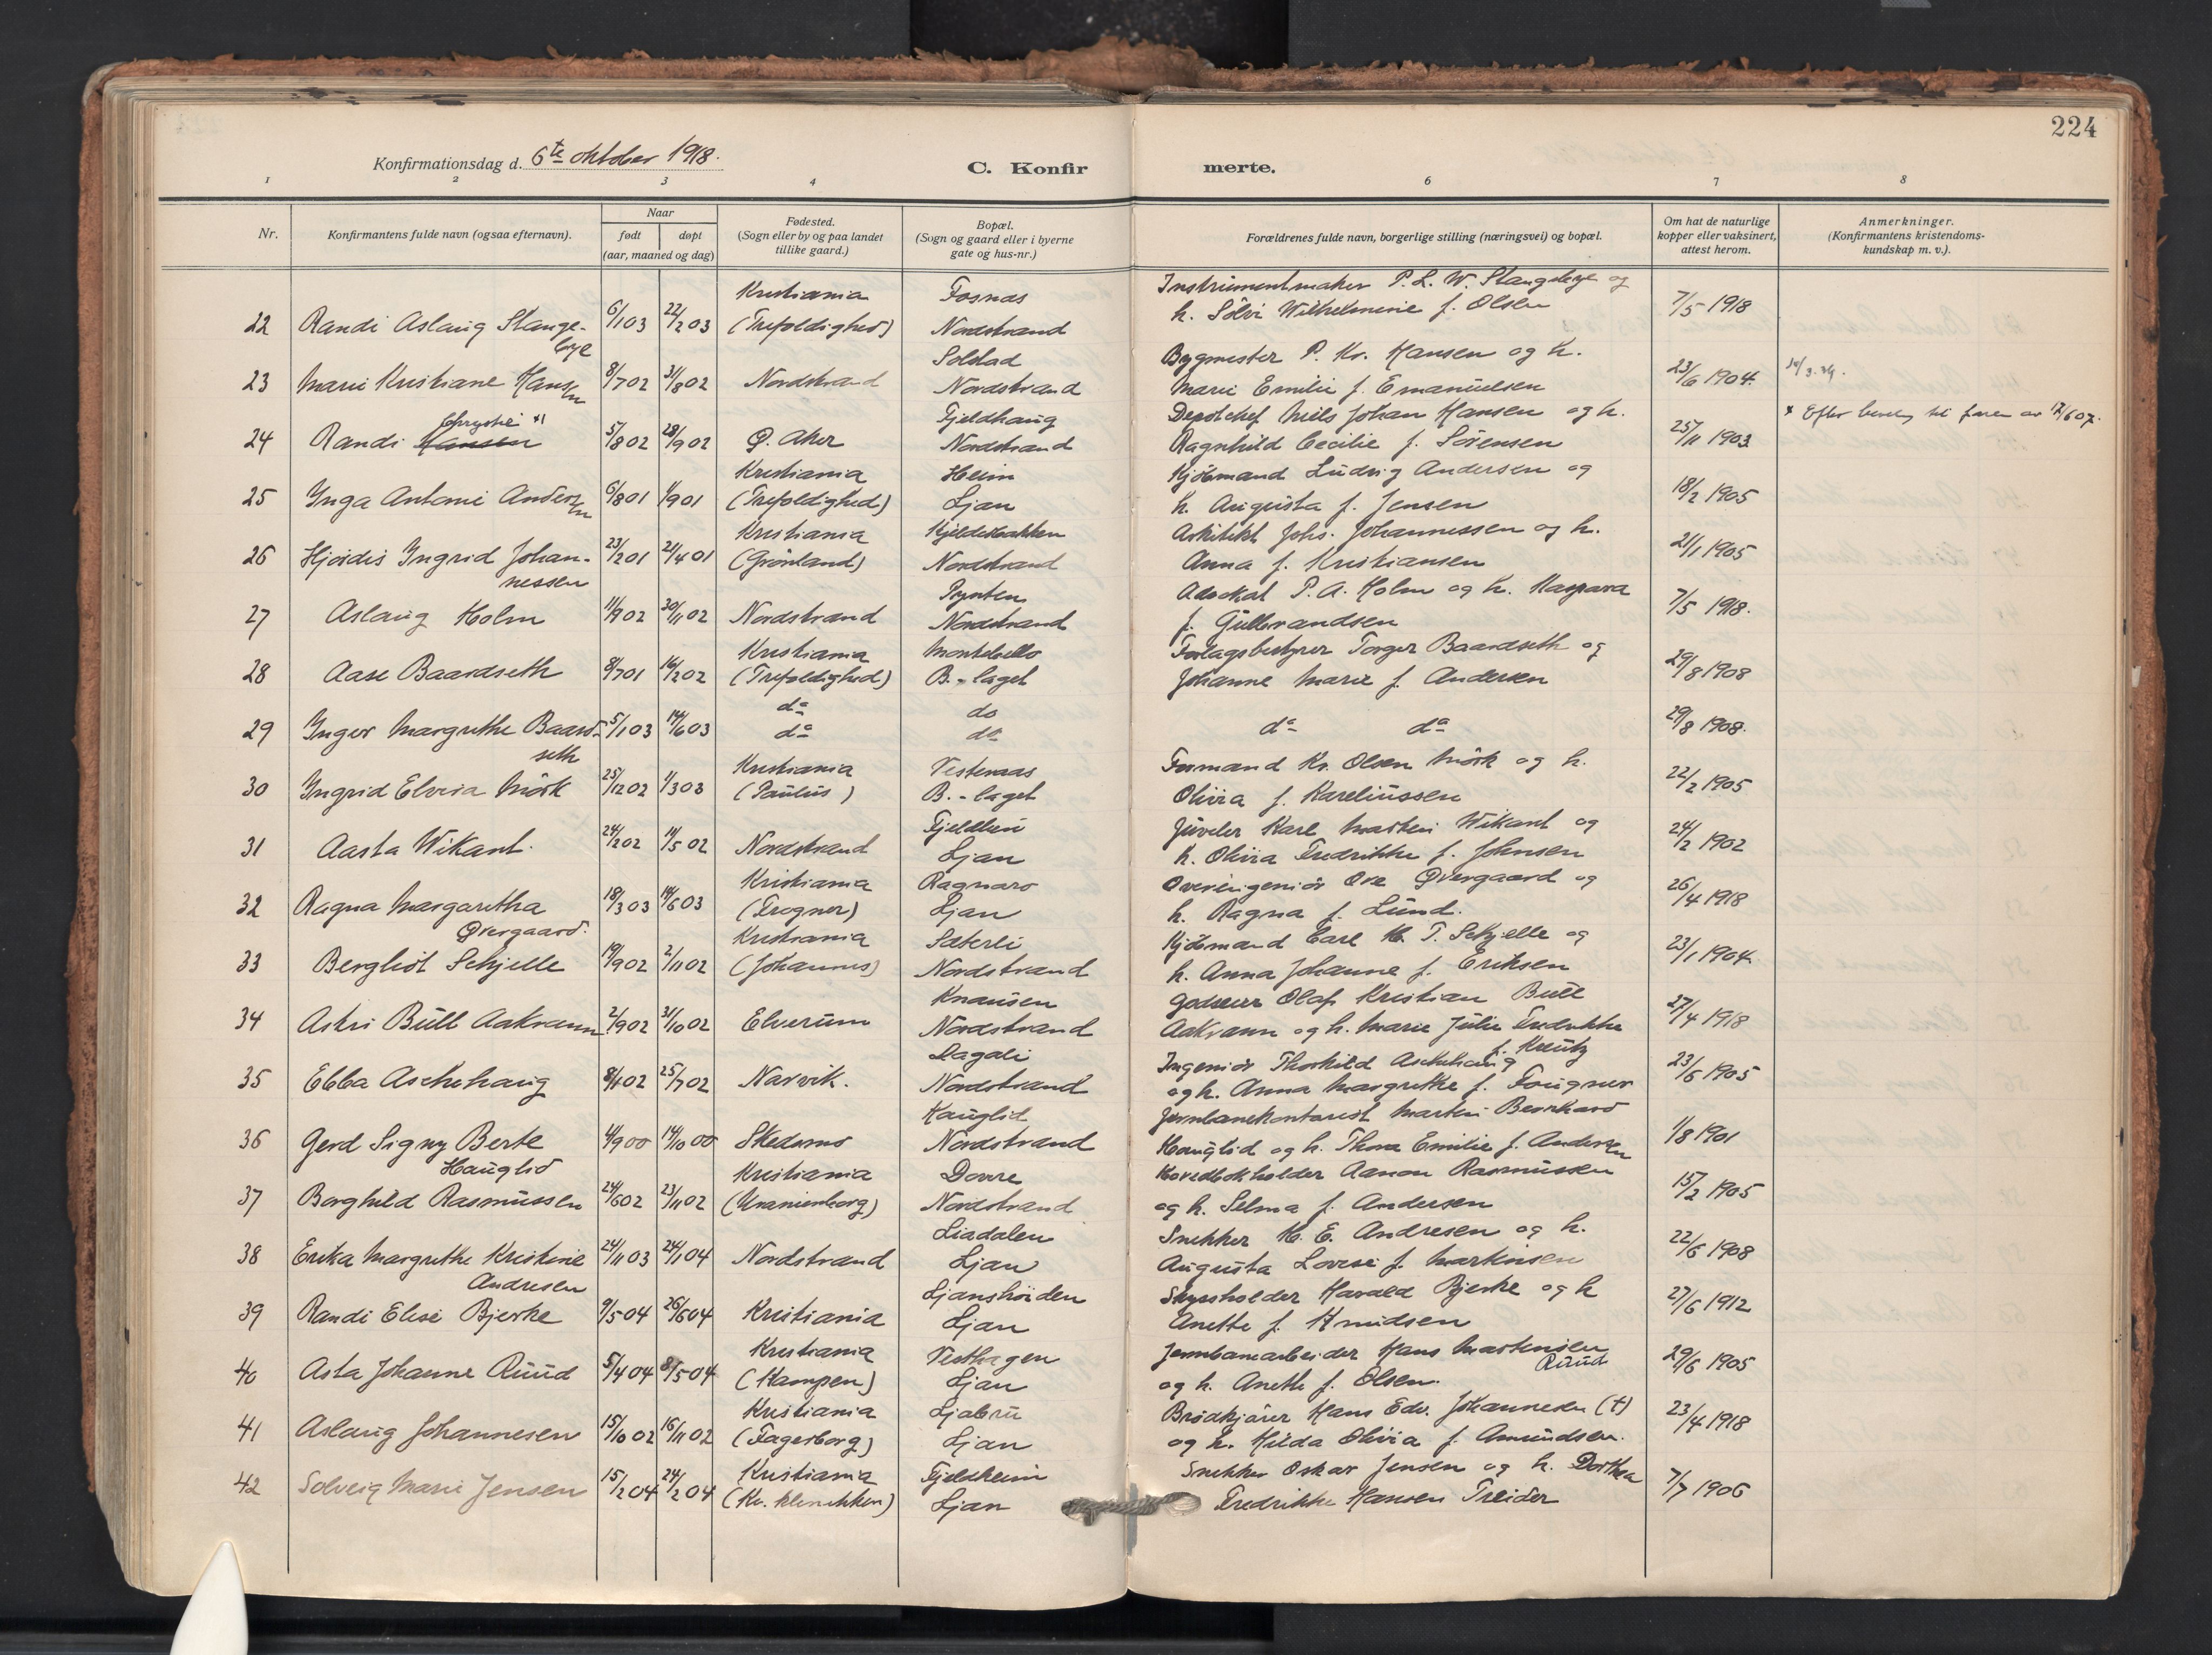 224
Konfirmationsdag d. 6te oktober 1918.
C. Konfirmerte.
1 2 3 4 6 7 8
Nr.
Konfirmantens fulde navn (ogsaa efternavn).
Naar
født døpt
(aar, maaned og dag)
Fødested.
(Sogn eller by og paa landet
tillike gaard.)
Bopæl.
(Sogn og gaard eller i byerne
gate og hus-nr.)
Forældrenes fulde navn, borgerlige stilling (næringsvei) og bopæl.
Om hat de naturlige
kopper eller vaksinert,
attest herom.
Anmerkninger.
(Konfirmantens kristendoms-
kundskap m. v.).
Kristiania Fosnas Instrumentmaker P. L. W. Stangebye og
22 Randi Aslaug Stange- 6/1 03 22/2 03 (Trefoldighed) Nordstrand h. Sölvi Wilhelmine f. Olsen 7/5 1918
bye Solstad Bygmester P. Kr. Hansen og h.
23 Marie Kristiane Hansen 8/7 02 31/8 02 Nordstrand Nordstrand Marie Emilie f. Emanuelsen 23/6 1904.
Chrystie x) Fjeldhaug Depotchef Nils Johan Hansen og h. x Efter til faren av 12/6 07.
24 Randi Hansen 5/8 02 28/9 02 Ø. Aker Nordstrand Ragnhild Cecilie f. Sörensen 25/11 1903
Kristiania Heim Kjöbmand Ludvig Andersen og
25 Inga Antonie Andersen 6/8 01 1/9 01 (Trefoldighed) Ljan h. Augusta f. Jensen 18/2 1905
Kristiania Kjeldebakken Arkitekt Johs. Johannessen og h.
26 Hjördis Ingrid Johan- 23/2 01 21/4 01 (Grönland) Nordstrand Anna f. Kristiansen 21/1 1905
nessen Pynten Advokat P. A. Holm og h. Kaspara
27 Aslaug Holm 11/9 02 30/11 02 Nordstrand Nordstrand f. Gulbrandsen 7/5 1918.
Kristiania Montebello Forlagsbestyrer Torger Baardseth og
28 Aase Baardseth 8/7 01 16/2 02 (Trefoldighed) B.-laget Johanne Marie f. Andersen 29/8 1908
do do
29 Inger Margrethe Baard- 5/1 03 14/6 03 do do do do 29/8 1908.
seth Kristiania Vesteraas Formand Kr. Olsen Mörk og h.
30 Ingrid Elvira Mörk 25/12 02 1/3 03 (Paulus) B.-laget Olivia f. Kareliussen 22/2 1905
Fjeldhus Juveler Karl Martin Wikant og
31 Aasta Wikant. 24/2 02 11/5 02 Nordstrand Ljan h. Olivia Fredrikke f. Johnsen 24/2 1902
Kristiania Ragnaro Overingeniör Ove Øvergaard og
32 Ragna Margaretha 18/3 03 14/6 03 (Frogner) Ljan h. Ragna f. Lund. 26/4 1918
Øvergaard. Kristiania Säterli Kjöbmand Carl H. T. Schjelle og
33 Bergliöt Schjelle 19/9 02 2/11 02 (Johannes) Nordstrand h. Anna Johanne f. Eriksen 23/1 1904.
Knausen Godseier Olaf Kristian Bull
34 Astri Bull Aakrann 2/9 02 31/10 02 Elverum Nordstrand Aakrann og h. Marie Julie Fredrikke 27/4 1918
f. Kreutz
Dagali Ingeniör Thorkild Aschehoug
35 Ebba Aschehoug 8/1 02 25/7 02 Narvik. Nordstrand og h. Anna Margrethe f. Fougner 23/6 1905
Hauglid Jernbanekontorist Martin Bernhard
36 Gerd Signy Berte 4/9 00 14/10 00 Skedsmo Nordstrand Hauglid og h. Thora Emilie f. Andersen 1/8 1901
Hauglid Kristiania Dovre Hovedbokholder Aanon Rasmussen
37 Borghild Rasmussen 24/6 02 23/11 02 (Uranienborg) Nordstrand og h. Selma f. Andersen 15/2 1905
Liadalen Snekker H. E. Andresen og h.
38 Erika Margrethe Kristine 24/11 03 24/1 04 Nordstrand Ljan Augusta Lovise f. Martinsen 22/6 1908
Andresen Ljanshöiden Skyssholder Harald Bjerke og h
39 Randi Elise Bjerke 9/5 04 26/6 04 Kristiania Ljan Anette f. Knudsen 27/6 1912
Kristiania Vesthagen Jernbanearbeider Hans Martinsen
Ruud
40 Asta Johanne Ruud 5/4 04 8/5 04 (Kampen) Ljan og h. Anette f. Olsen. 29/6 1905
Kristiania Ljabru Brödkjörer Hans Edv. Johannesen (†)
41 Aslaug Johannesen 15/10 02 16/11 02 (Fagerborg) Ljan og h. Hilda Olivia f. Amundsen. 23/4 1918
Kristiania Fjeldheim Snekker Oskar Jensen og h. Dorthea
42 Solveig Marie Jensen 15/2 04 24/2 04 (Kv. klinikken) Ljan Fredrikke Hansen Treider 7/7 1906